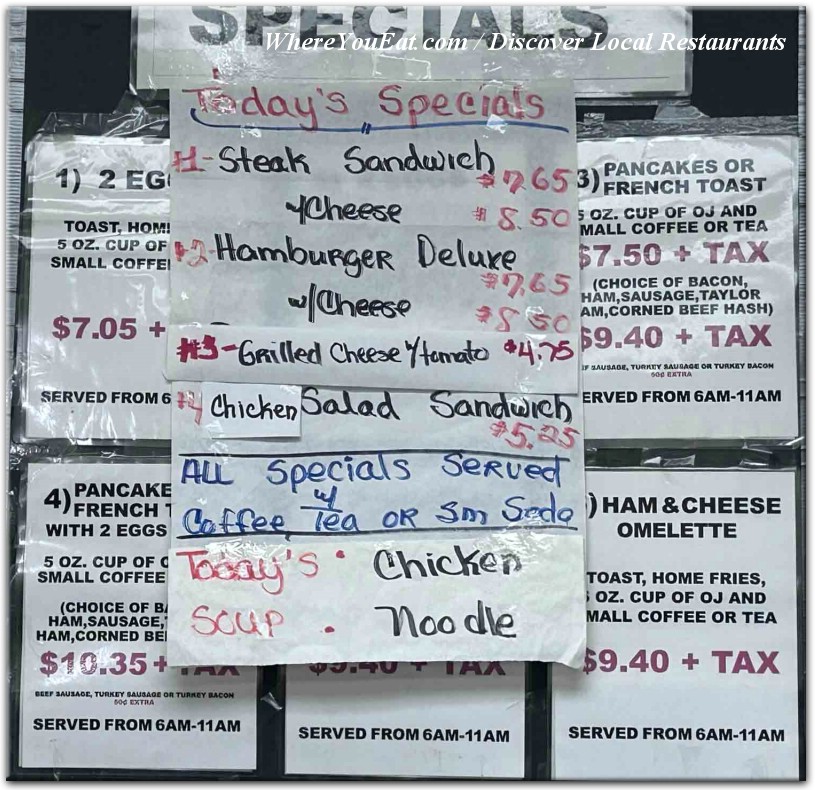 SPECIALS
WhereYouEat.com / Discover Local Restaurants
Today's Specials
#1-Steak Sandwich $7.65
w/Cheese $8.50
#2-Hamburger Deluxe $7.65
w/Cheese $8.50
#3-Grilled Cheese w/tomato $4.75
#4 Chicken Salad Sandwich
$5.25
ALL Specials Served
w/
Coffee, Tea OR Sm Soda
Today's • Chicken
Soup • Noodle
1) 2 EG
TOAST, HOM
5 OZ. CUP OF
SMALL COFFE
$7.05 +
SERVED FROM 6
3) PANCAKES OR
FRENCH TOAST
5 OZ. CUP OF OJ AND
MALL COFFEE OR TEA
$7.50 + TAX
(CHOICE OF BACON,
HAM,SAUSAGE,TAYLOR
AM,CORNED BEEF HASH)
$9.40 + TAX
EF SAUSAGE, TURKEY SAUSAGE OR TURKEY BACON
50¢ EXTRA
ERVED FROM 6AM-11AM
4) PANCAKE
FRENCH T
WITH 2 EGGS
5 OZ. CUP OF O
SMALL COFFEE
(CHOICE OF BA
HAM,SAUSAGE,
HAM,CORNED BE
$10.35 + TAX
BEEF SAUSAGE, TURKEY SAUSAGE OR TURKEY BACON
50¢ EXTRA
SERVED FROM 6AM-11AM
$9.40 + TAX
SERVED FROM 6AM-11AM
) HAM & CHEESE
OMELETTE
TOAST, HOME FRIES,
OZ. CUP OF OJ AND
MALL COFFEE OR TEA
$9.40 + TAX
SERVED FROM 6AM-11AM